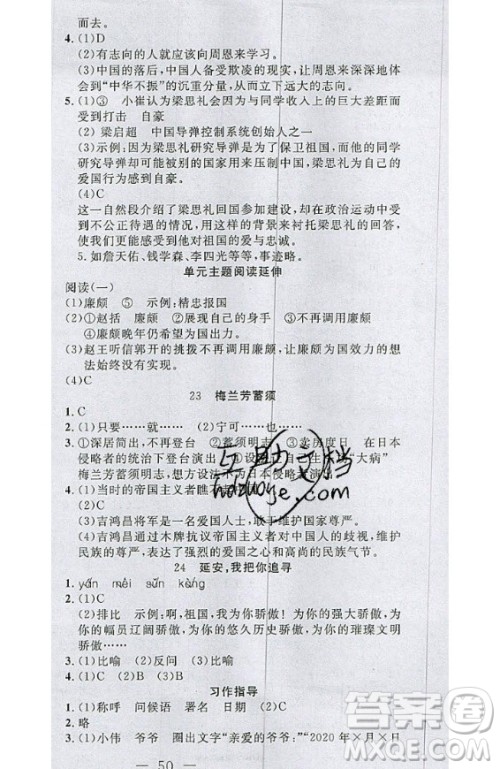 而去。
4.(1)D
(2)有志向的人就应该向周恩来学习。
(3)中国的落后,中国人备受欺凌的现实,让周恩来深深地体会到“中华不振”的沉重分量,从而立志振兴中华。
5.(1)③ 小崔认为梁思礼会因为与同学收入上的巨大差距而受到打击 自豪
(2)梁启超 中国导弹控制系统创始人之一
(3)示例:因为梁思礼研究导弹是为了保卫祖国,而他的同学研究导弹可能被别的国家用来压制中国,梁思礼为自己的爱国行为感到自豪。
(4)C
这一自然段介绍了梁思礼回国参加建设,却在政治运动中受到不公正待遇的情况,用他受到的挫折来衬托梁思礼的回答,更突出表现他对祖国的爱与忠诚。
5.如詹天佑、钱学森、李四光等等,事迹略。
单元主题阅读延伸
阅读(一)
(1)廉颇 ⑤ 示例:精忠报国
(2)①赵括 ②廉颇 ③不再调用廉颇
④廉颇晚年仍希望为国出力。
(3)赵王听信郭开的挑拨不再调用廉颇,廉颇为国效力的想法始终没有实现。
23 梅兰芳蓄须
1.C
2.(1)只要……就…… (2)宁可……也……
3.(1)①深居简出,不再登台 ②蓄须明志 ③卖房度日 在日本
梅兰芳蓄须明志,
4.(1)当时的帝国主义者瞧
(2)C
(3)吉鸿昌将军是一名爱国人士,敢于维护国家尊严。
(4)吉鸿昌通过木牌抗议帝国主义者对中国人的歧视,维护民族的尊严,表达了强烈的爱国之心和高尚的民族气节。
24 延安,我把你追寻
1.yán mēi sǔn kòng
2.(1)C
(2)排比 示例:啊,我的祖国,我为你骄傲!我为你骄傲,为你的幅员辽阔骄傲,为你的悠久历史骄傲,为你的璀璨文明骄傲!
3.(1)比喻 (2)反问 (3)比喻
4.(1)C (2)A
习作指导
1.(1)称呼 问候语 署名 日期 (2)C
2.略
3.(1)小伟 爷爷 圈出文字“亲爱的爷爷:”“2020年×月×日
— 50 —
hazuoye.com
答案圈